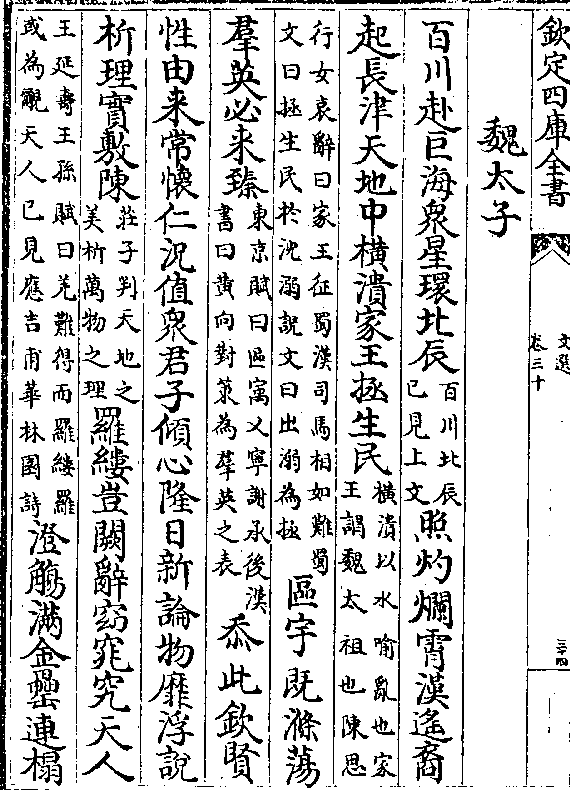 欽定四庫全書
文選
卷三十
三十四
魏太子
百川赴巨海衆星環北辰百川北辰
已見上文照灼爛霄漢遙裔
起長津天地中橫潰家王拯生民橫潰以水喻亂也家
王謂魏太祖也陳思
行女哀辭曰家王征蜀漢司馬相如難蜀
文曰拯生民於沈溺說文曰出溺為拯區宇既滌蕩
羣英必来臻東京賦曰區寓乂寧謝承後漢
書曰黄向對策為羣英之表忝此欽賢
性由来常懐仁況值衆君子傾心隆日新論物靡浮說
析理實敷陳莊子判天地之
美析萬物之理羅縷豈闕辭窈窕究天人
王延壽王孫賦曰羌難得而羅縷羅
或為覼天人已見應吉甫華林園詩澄觴滿金罍連榻